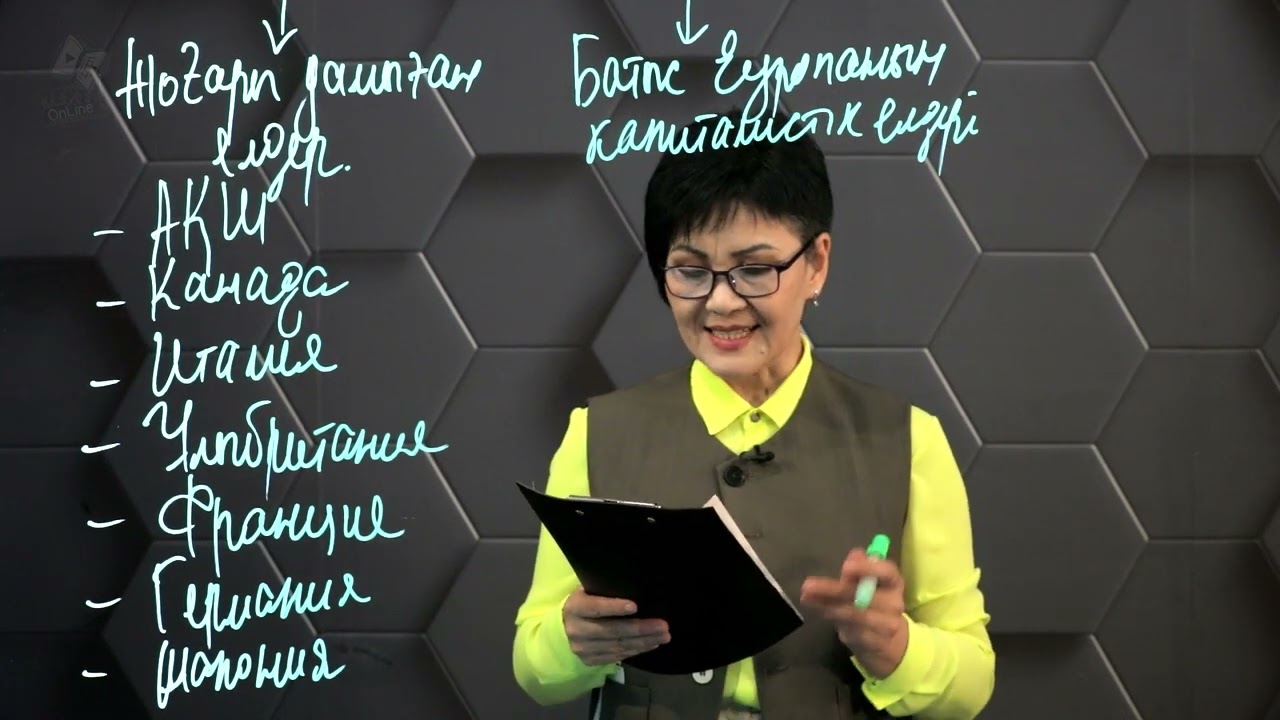 Жоғары дамыған
елдер.
- АҚШ
- Канада
- Италия
- Ұлыбритания
- Франция
- Германия
- Жапония
Батыс Еуропаның
капиталистік елдері
OnLine